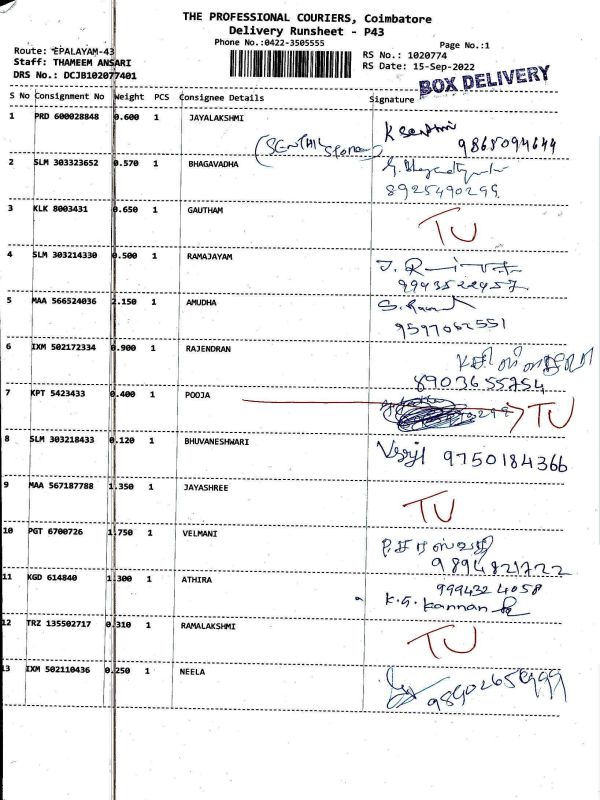 THE PROFESSIONAL COURIERS, Coimbatore
Delivery Runsheet - P43
Phone No.:0422-3505555
Page No.:1
Route: EPALAYAM-43
Staff: THAMEEM ANSARI
DRS No.: DCJB102077401
RS No.: 1020774
RS Date: 15-Sep-2022
BOX DELIVERY
S No Consignment No Weight PCS Consignee Details Signature
1 PRD 600028848 0.600 1 JAYALAKSHMI K Senthil
9865094644
2 SLM 303323652 0.570 1 BHAGAVADHA
8925490299
3 KLK 8003431 0.650 1 GAUTHAM TU
4 SLM 303214330 0.500 1 RAMAJAYAM
9943522457
5 MAA 566524036 2.150 1 AMUDHA
9597062551
6 IXM 502172334 0.900 1 RAJENDRAN
8903655754
7 KPT 5423433 0.400 1 POOJA TU
8 SLM 303218433 0.120 1 BHUVANESHWARI 9750184366
9 MAA 567187788 1.350 1 JAYASHREE TU
10 PGT 6700726 1.750 1 VELMANI
9894821722
11 KGD 614840 1.300 1 ATHIRA 9994324058
K.G. Kannan
12 TRZ 135502717 0.310 1 RAMALAKSHMI TU
13 IXM 502110436 0.250 1 NEELA